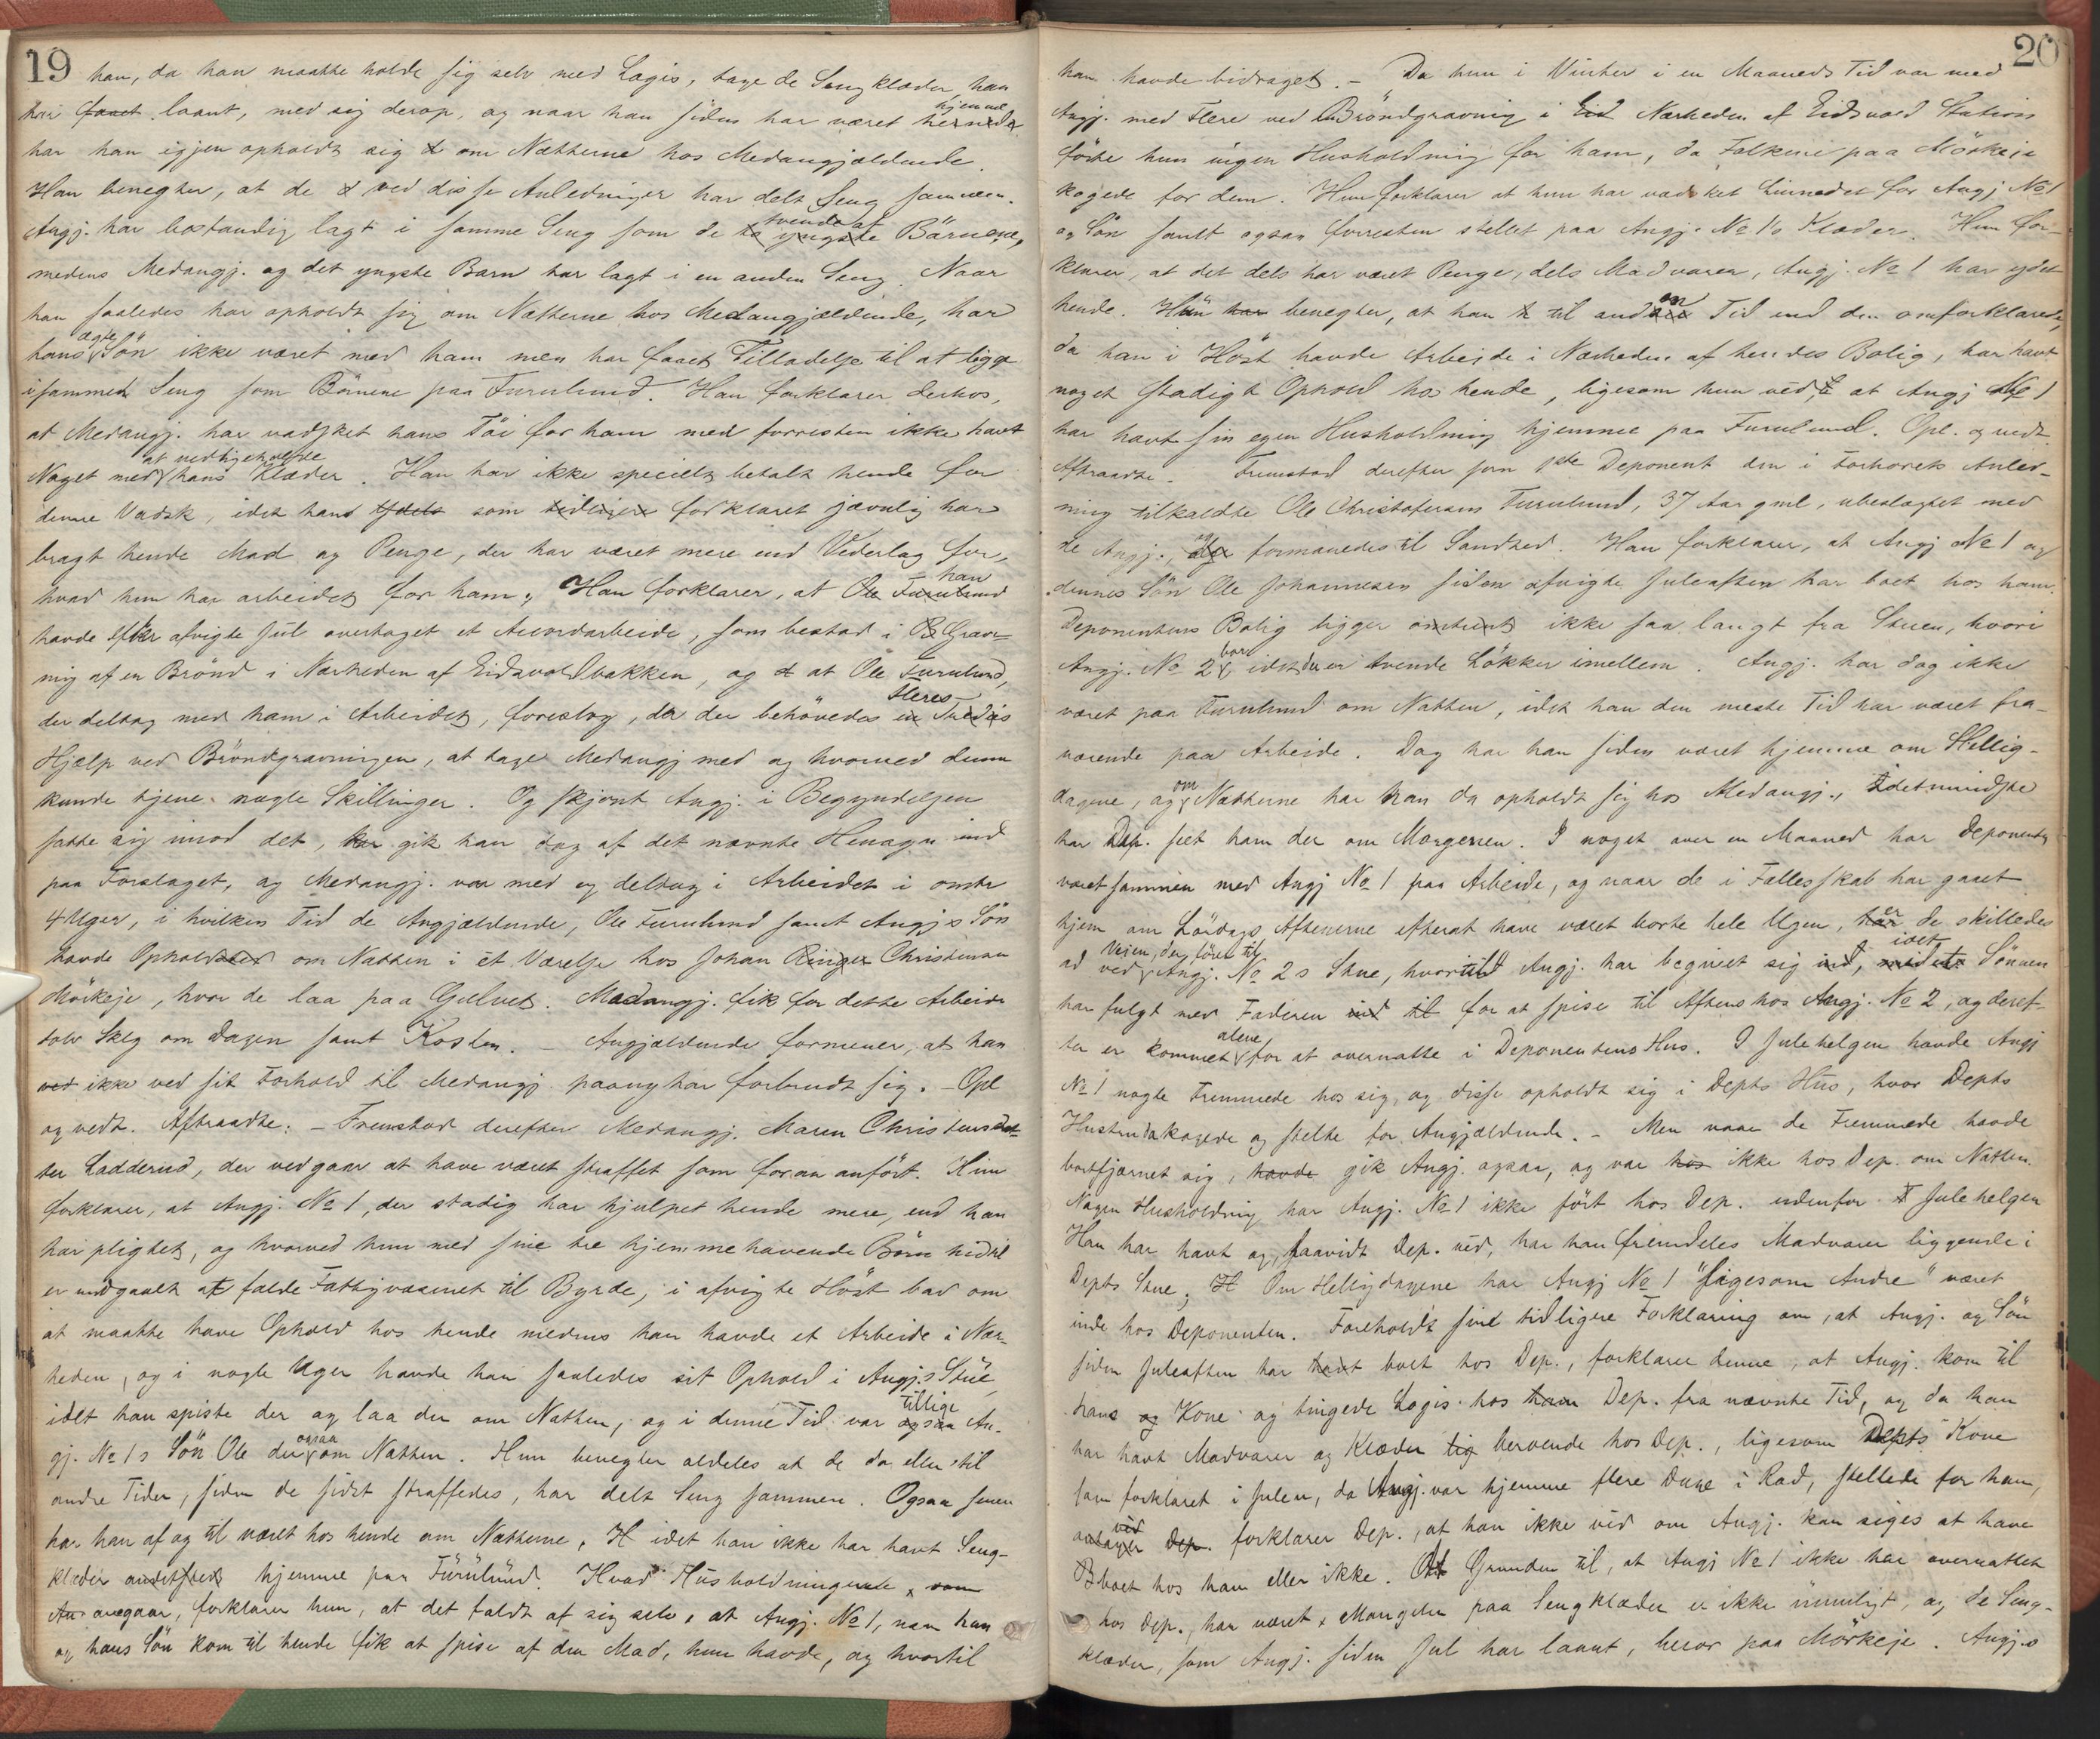 19
han, da han maatte holde sig selv med Logis, tage de Sengklæder, han
har faaet laant, med sig derop, og naar han siden har været hjemme
har han igjen opholdt sig om Nætterne hos Medangjældende
Han benegter, at de ved disse Anledninger har delt Seng sammen.
Angj. har bestandig lagt i samme Seng som de tvende af Börnene,
medens Medangj. og det yngste Barn har lagt i en anden Seng. Naar
han saaledes har opholdt sig om Nætterne hos Medangjældende, har
hans ægte Sön ikke været med ham men har faaet Tilladelse til at ligge
i sammen Seng som Börnene paa Furulund. Han forklarer derhos,
at Medangj. har vadsket hans Töi for ham med forresten ikke havt
Noget med at vedligeholde hans Klæder. Han har ikke specielt betalt hende for
denne Vadsk, idet han som forklaret jævnlig har
bragt hende Mad og Penge, der har været mere end Vederlag for,
hvad hun har arbeidet for ham. Han forklarer, at han
havde efter afvigte Jul overtaget et Accordarbeide, som bestod i Grav-
ning af en Brönd i Nærheden af Eidsvoldbakken, og at Ole Furulund,
der deltog med ham i Arbeidet, foreslog, da der behövedes Fleres
Hjælp ved Bröndgravningen, at tage Medangj med og hvorved denne
kunde tjene nogle Skillinger. Og skjönt Angj. i Begyndelsen
satte sig imod det, gik han dog af det nævnte Hensyn ind
paa Forslaget, og Medangj. var med og deltog i Arbeidet i omtr
4 Uger, i hvilken Tid de Angjældende, Ole Furulund samt Angj s Sön
havde Ophold om Natten i et Værelse hos Johan Christensen
Mörkeje, hvor de laa paa Gulvet. Medangj. fik for dette Arbeide
tolv Sklg om Dagen samt Kosten. – Angjældende formener, at han
ikke ved sit Forhold til Medangj. paany har forbrudt sig. – Opl
og vedt. Aftraadte. – Fremstod derefter Medangj. Maren Christensdat-
ter Ladderud, der vedgaar at have været straffet som foran anfört. Hun
forklarer, at Angj. No 1, der stadig har hjulpet hende mere, end han
har pligtet, og hvorved hun med sine tre hjemmehavende Börn hidtil
er undgaaet at falde Fattigvæsenet til Byrde, i afvigte Höst bad om
at maatte have Ophold hos hende medens han havde et Arbeide i Nær-
heden, og i nogle Uger havde han saaledes sit Ophold i Angj.s Stue,
idet han spiste der og laa der om Natten, og i denne Tid var tillige An-
gj. No 1s Sön Ole der ogsaa om Natten. Hun benegter aldeles at de da eller til
andre Tider, siden de sidst straffedes, har delt Seng sammen. Ogsaa senere
har han af og til været hos hende om Nætterne, idet han ikke har havt Seng-
klæder hjemme paa Furulund. Hvad Husholdningen
angaar, forklarer hun, at det faldt af sig selv, at Angj. No 1, naar han
og hans Sön kom til hende fik at spise af den Mad, hun havde, og hvortil
20
han havde bidraget. – Da hun i Vinter i en Maaneds Tid var med
Angj. med Flere ved Bröndgravning i Nærheden af Eidsvold Station
förte hun ingen Husholdning for ham, da Folkene paa Mörkeje
kogede for dem. Hun forklarer at hun har vadsket Linnedet for Angj No 1
og Sön samt ogsaa forresten stellet paa Angj. No 1s Klæder. Hun for-
klarer, at det dels har været Penge, dels Madvarer, Angj. No 1 har ydet
hende. Hun benegter, at han til anden Tid end den omforklarede,
da han i Höst havde Arbeide i Nærheden af hendes Bolig, har havt
noget stadigt Ophold hos hende, ligesom hun ved, at Angj No 1
har havt sin egen Husholdning hjemme paa Furulund. Opl. og vedt.
Aftraadte. Fremstod derefter som 1ste Deponent den i Forhörets Anled-
ning tilkaldte Ole Christofersen Furulund, 37 Aar gml, ubeslægtet med
de Angj., og formanedes til Sandhed. Han forklarer, at Angj No 1 og
dennes Sön Ole Johannesen siden afvigte Juleaften har boet hos ham.
Deponentens Bolig ligger ikke saa langt fra Stuen, hvori
Angj. No 2 bor idet der er tvende Lökker imellem. Angj. har dog ikke
været paa Furulund om Natten, idet han den meste Tid har været fra-
værende paa Arbeide. Dog har han siden været hjemme om Hellig-
dagene, og om Nætterne har han da opholdt sig hos Medangj., idetmindste
har Dep. seet ham der om Morgenen. I noget over en Maaned har Deponenten
været sammen med Angj No 1 paa Arbeide, og naar de i Fællesskab har gaaet
hjem om Lördags Aftenerne efterat have været borte hele Ugen, er de skilledes
ad ved Veien, der förer til Angj. No 2s Stue, hvortil Angj. har begivet sig idet Sönnen
har fulgt med Faderen for at spise til Aftens hos Angj. No 2, og deref-
ter er kommet alene for at overnatte i Deponentens Hus. I Julehelgen havde Angj
No 1 nogle Fremmede hos sig, og disse opholdt sig i Depts Hus, hvor Depts
Hustru kogede og stelte for Angjældende. – Men naar de Fremmede havde
bortfjærnet sig, gik Angj. ogsaa, og var ikke hos Dep. om Natten.
Nogen Husholdning har Angj. No 1 ikke fört hos Dep. udenfor Julehelgen
Han har havt og, saavidt Dep. ved, har han fremdeles Madvarer liggende i
Depts Stue. Om Helligdagene har Angj No 1 "ligesom Andre" været
inde hos Deponenten. Foreholdt sin tidligere Forklaring om, at Angj. og Sön
siden Juleaften har boet hos Dep., forklarer denne, at Angj. kom til
hans Kone og tingede Logis hos Dep. fra nævnte Tid, og da han
har havt Madvarer og Klæder beroende hos Dep., ligesom Depts Kone
som forklaret i Julen, da Angj. var hjemme flere Dage i Rad, stellede for ham,
forklarer Dep., at han ikke ved om Angj. kan siges at have
boet hos ham eller ikke. Grunden til, at Angj No 1 ikke har overnattet
hos Dep., har været Mangelen paa Sengklæder er ikke rimeligt, og de Seng-
klæder, som Angj. siden Jul har laant, beror paa Mörkeje. Angj.s